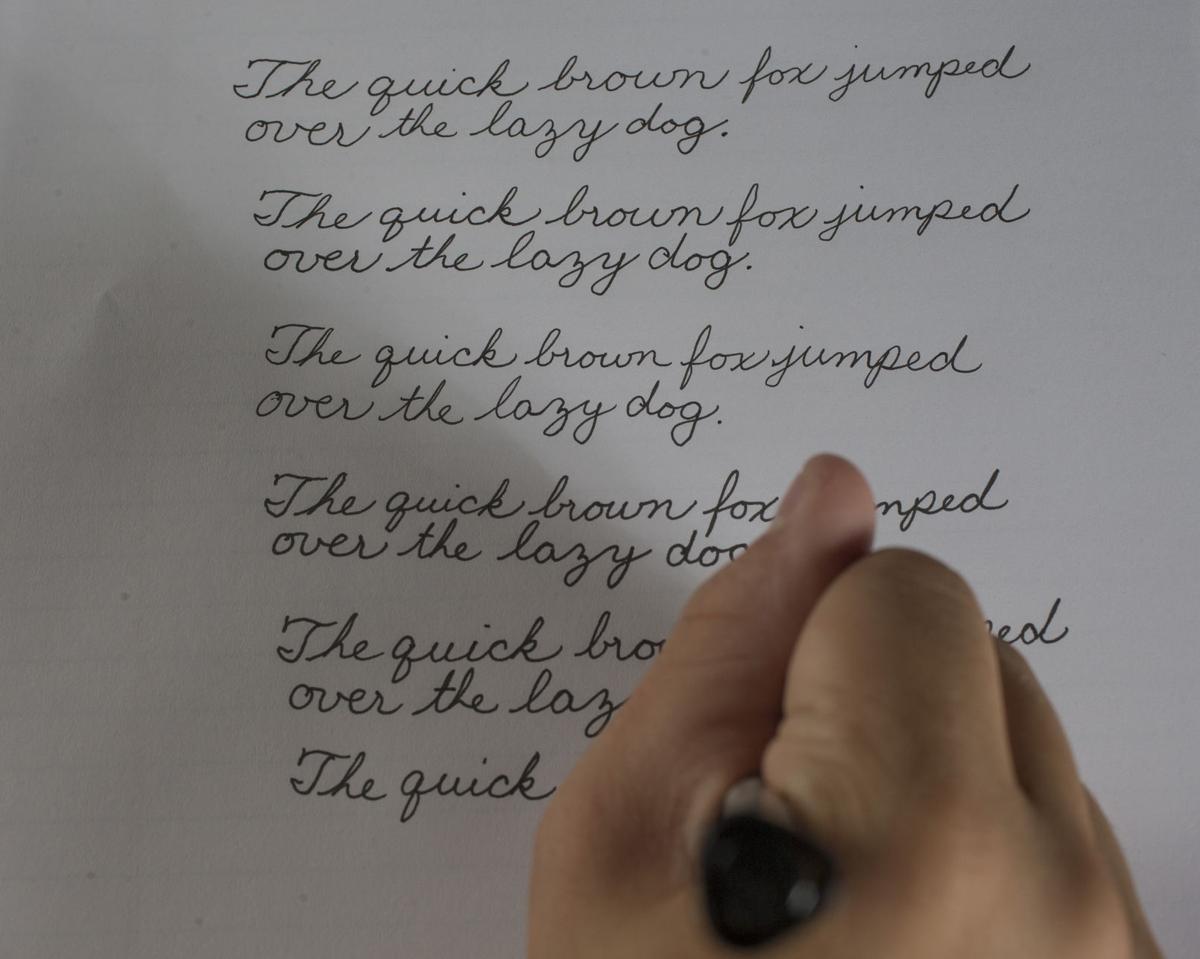 The quick brown fox jumped
over the lazy dog.
The quick brown fox jumped
over the lazy dog.
The quick brown fox jumped
over the lazy dog.
The quick brown fox
over the lazy
The quick
over the
The quick